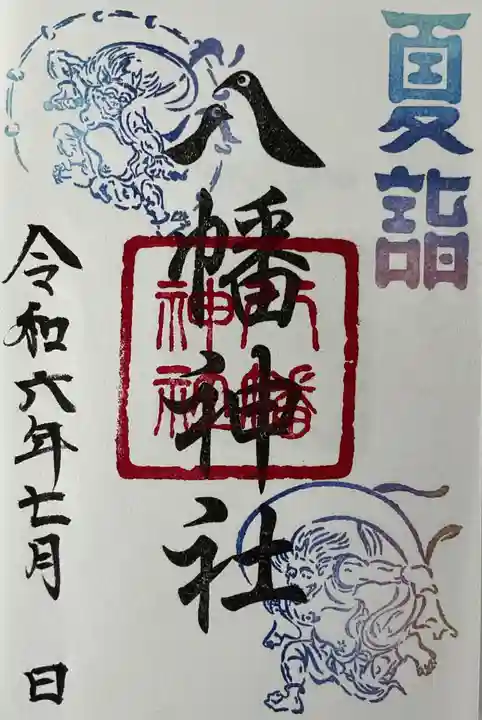 夏詣
八幡神社
八幡
神社
令和六年七月 日